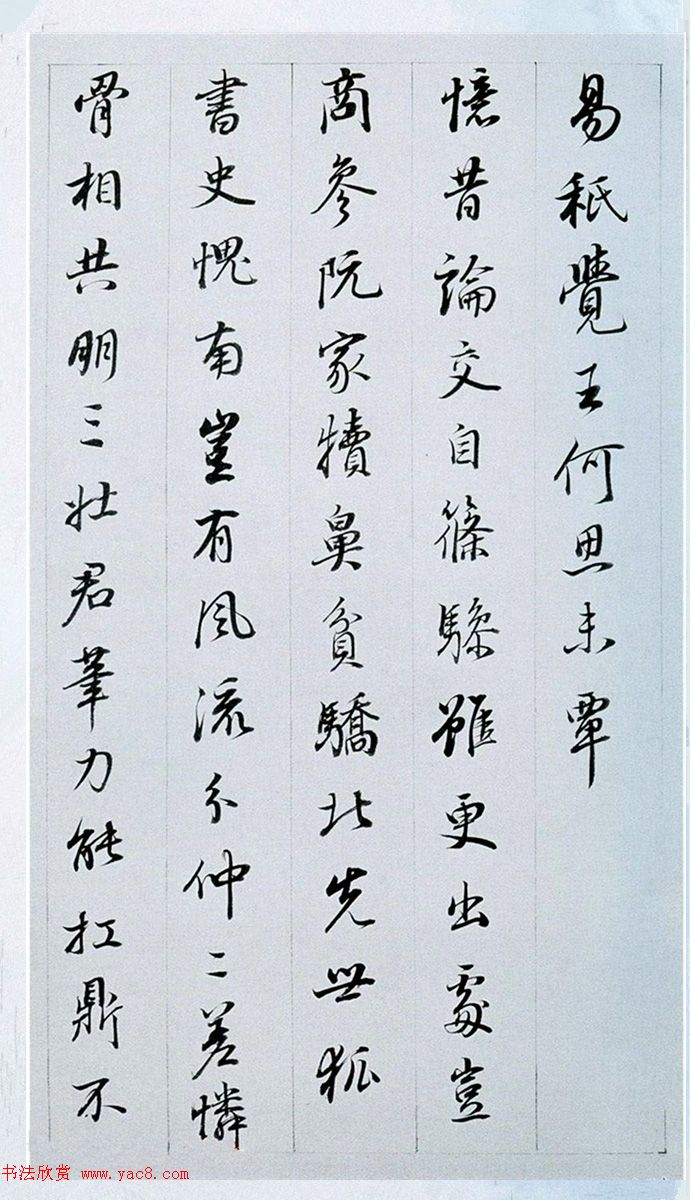 易秖覺王何思未覃
憶昔論交自篠驂雖更出處豈
商參阮家犢鼻貧驕北先世狐
書史愧南豈有風流分仲二差憐
骨相共明三壯君筆力能扛鼎不
书法欣赏 www.yac8.com